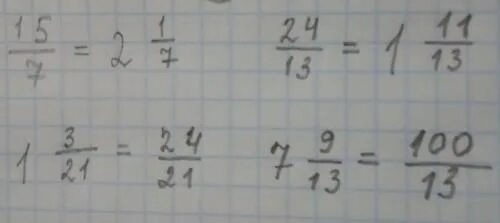 15/7 = 2 1/7    24/13 = 1 11/13
1 3/21 = 24/21    7 9/13 = 100/13